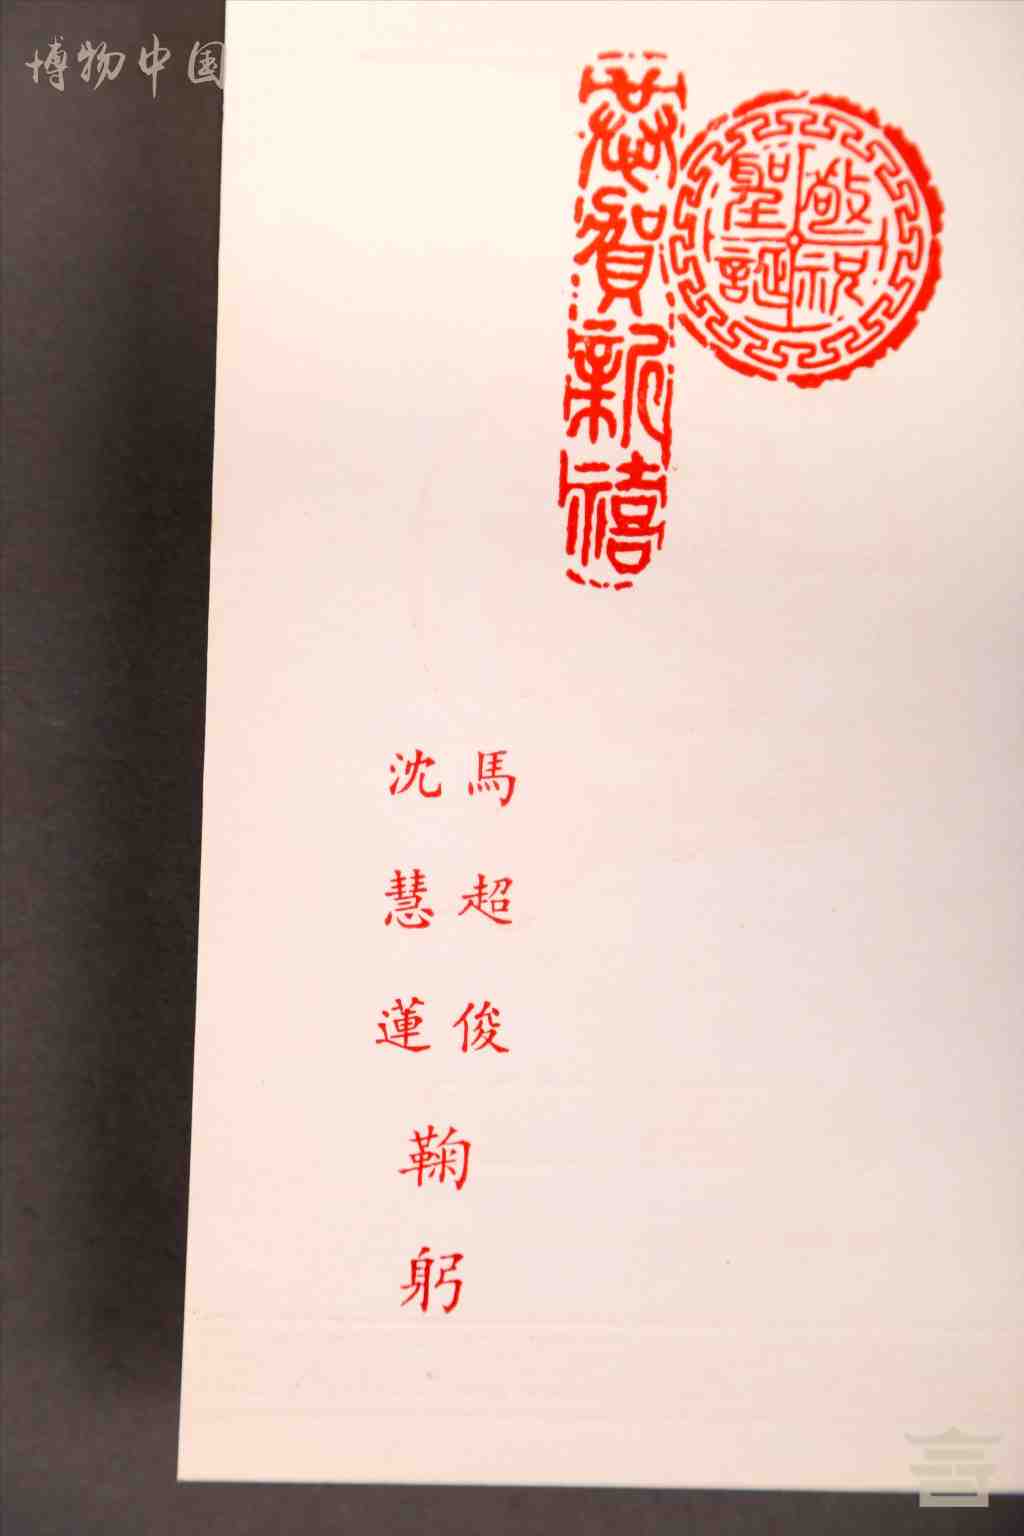 博物中国
敬祝聖誕
恭賀新禧
馬超俊
沈慧蓮
鞠躬